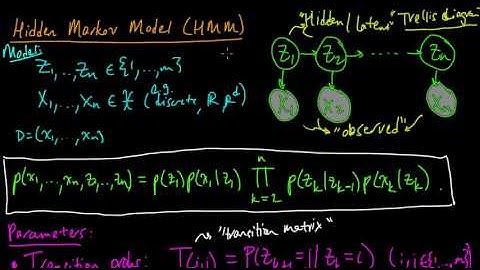 Hidden Markov Model (HMM)
Model:
Z₁,..,Zₙ ∈ {1,...,m}
X₁,...,Xₙ ∈ 𝒳 (e.g. discrete, ℝ, ℝᵈ)
D = (x₁,...,xₙ)
"Hidden/latent" Trellis diagram
Z₁ Z₂ ---- Zₙ
X₁ X₂ Xₙ
"observed"
p(x₁,...,xₙ,z₁,...,zₙ) = p(z₁)p(x₁|z₁) ∏ₖ₌₂ⁿ p(zₖ|zₖ₋₁)p(xₖ|zₖ).
Parameters:
"transition matrix"
• Transition probs: T(i,j) = P(Zₖ₊₁=j|Zₖ=i) (i,j∈{1,...,m})